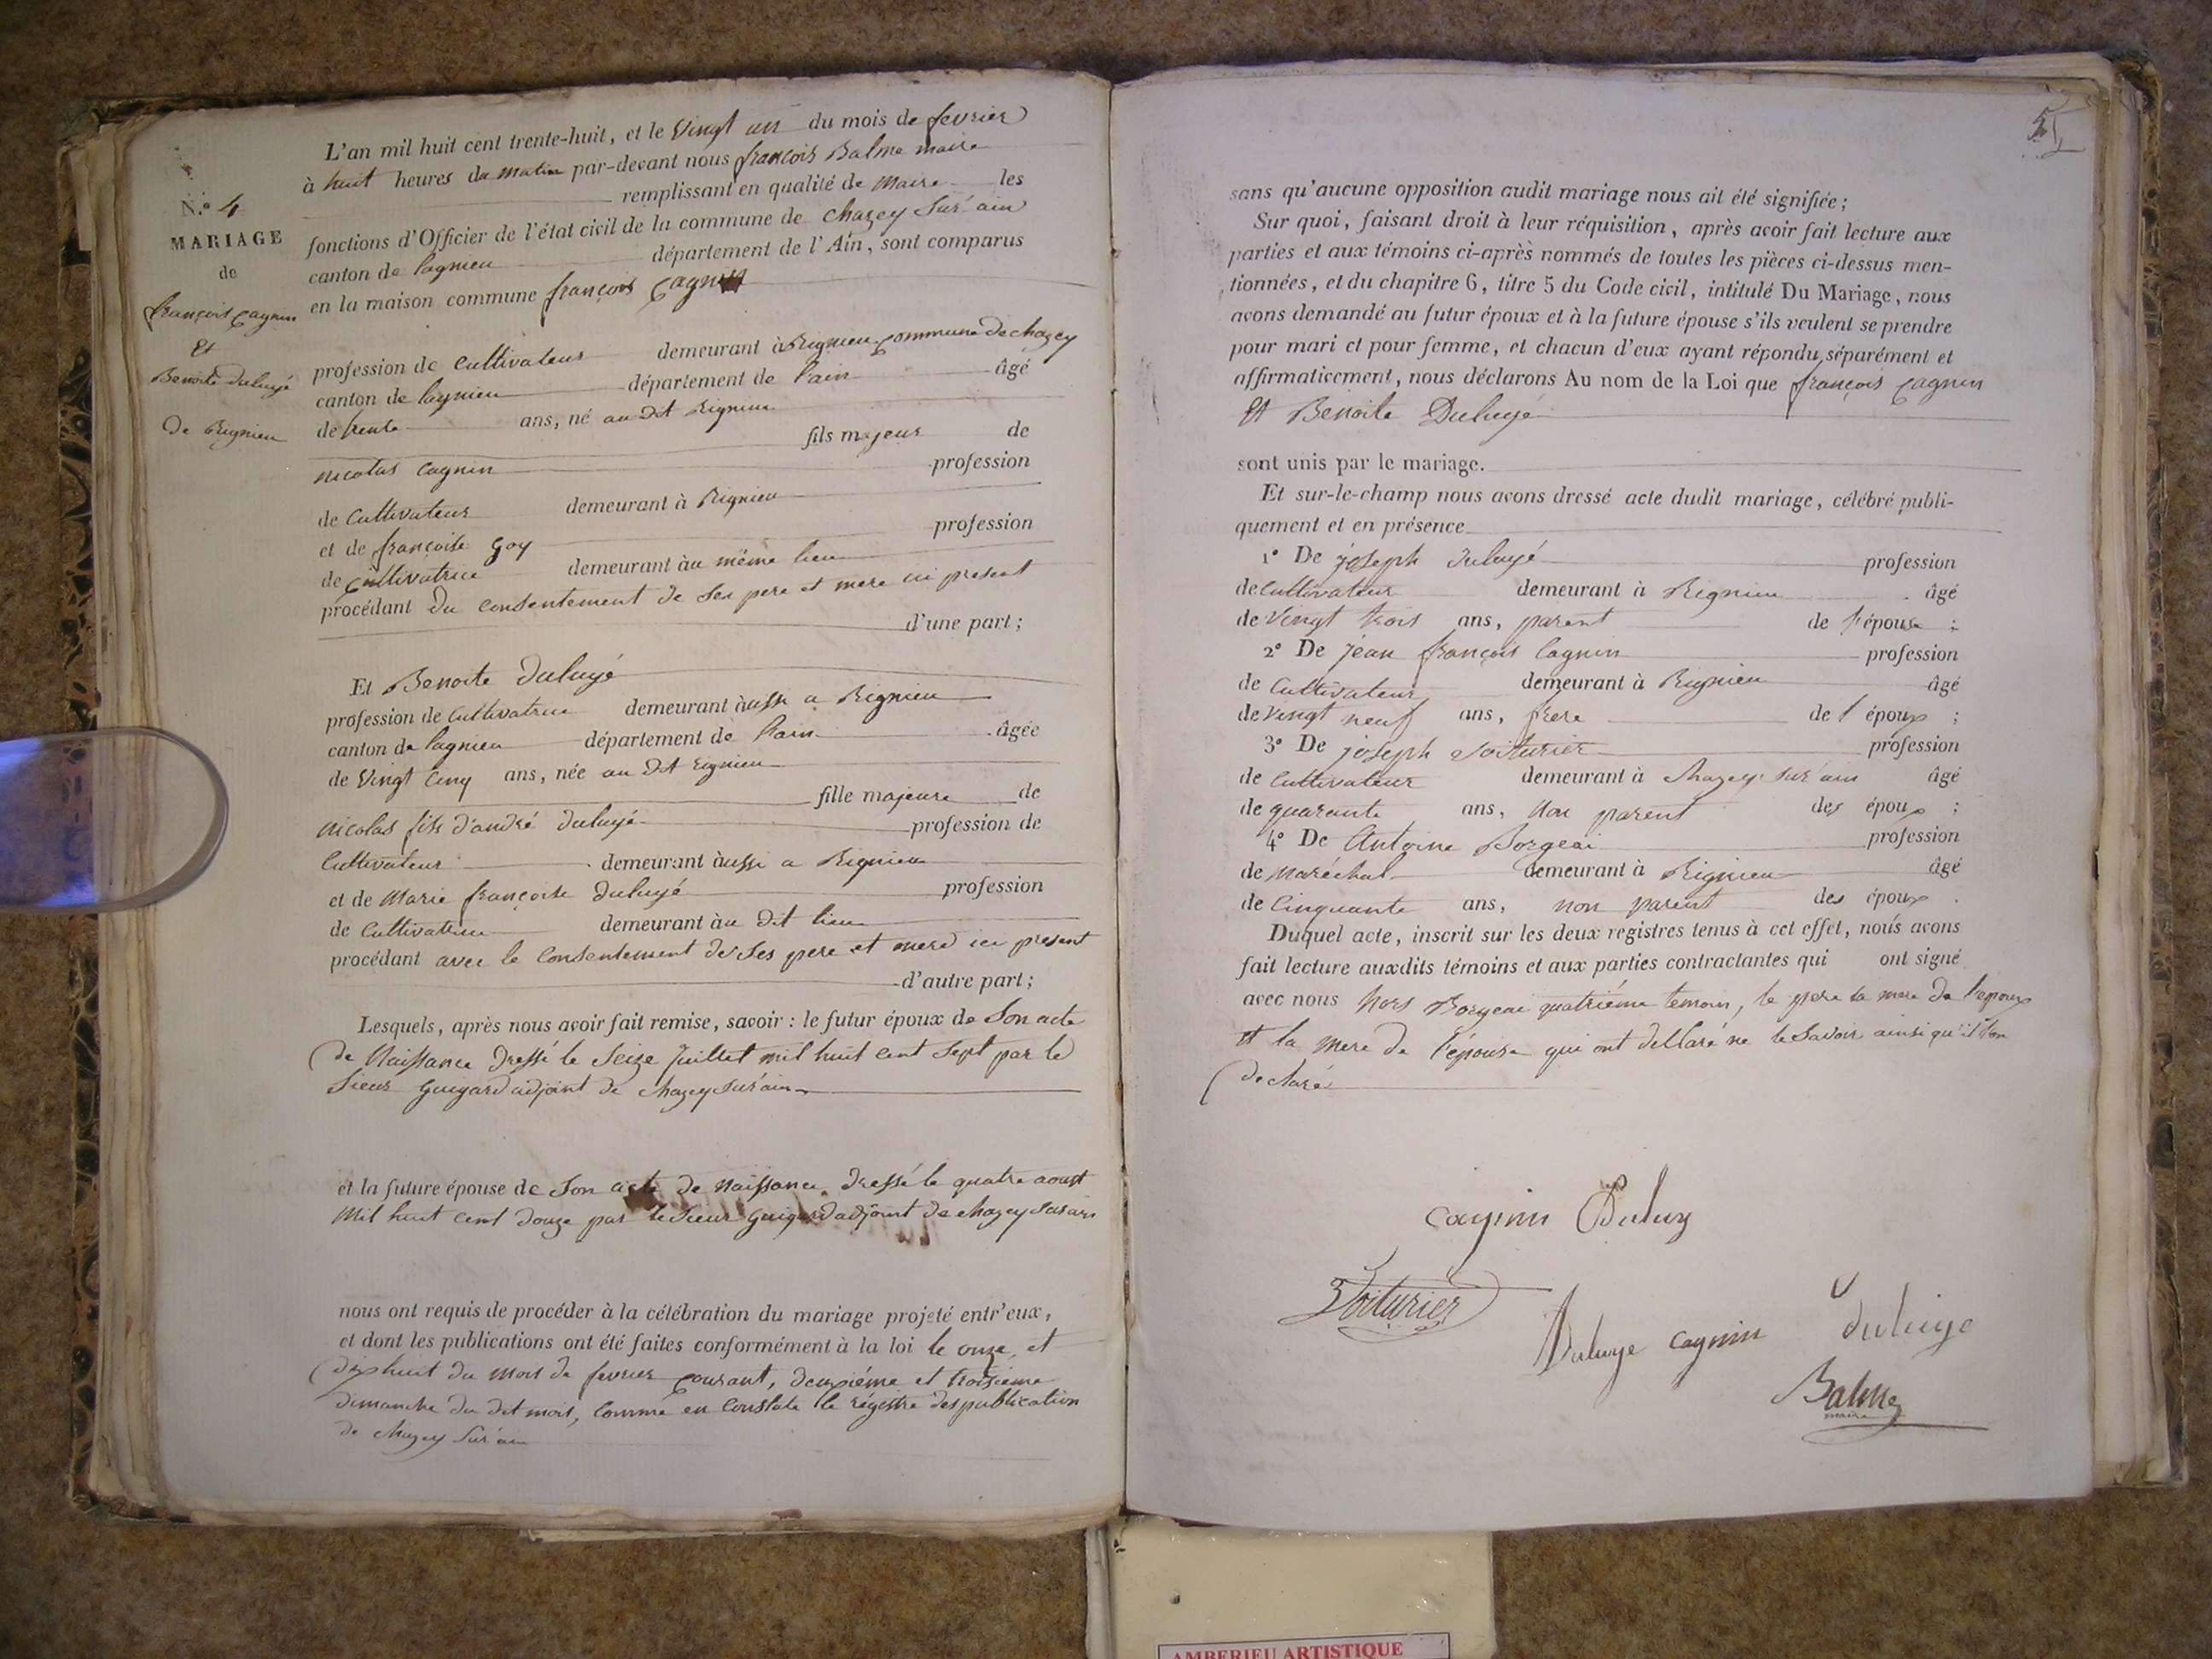 N.° 4
MARIAGE
de
françois Cagnin
Et
Benoite Duluyé
De Rignieu
L'an mil huit cent trente-huit, et le vingt un du mois de fevrier
à huit heures du matin par-devant nous françois Balme maire
remplissant en qualité de maire les
fonctions d'Officier de l'état civil de la commune de chazey sur ain
canton de lagnieu département de l'Ain, sont comparus
en la maison commune françois Cagnin
profession de cultivateur demeurant à Rignieu commune de chazey
canton de lagnieu département de l'ain âgé
de trente ans, né au dit Rignieu
fils majeur de
nicolas Cagnin profession
de cultivateur demeurant à Rignieu
et de françoise Goy profession
de cultivatrice demeurant àu même lieu
procédant du consentement de ses pere et mere ici present
d'une part;
Et Benoite Duluyé
profession de cultivatrice demeurant àussi a Rignieu
canton de lagnieu département de l'ain âgée
de vingt cinq ans, née au dit Rignieu
fille majeure de
nicolas fils d'andré duluyé profession de
cultivateur demeurant àussi a Rignieu
et de Marie françoise Duluyé profession
de cultivatrice demeurant àu dit lieu
procédant avec le consentement de ses pere et mere ici present
d'autre part;
Lesquels, après nous avoir fait remise, savoir: le futur époux de son acte
de Naissance Dressé le seize juillet mil huit cent sept par le
sieur Guigard adjoint de chazey sur ain
et la future épouse de son acte de Naissance dressé le quatre aoust
mil huit cent douze par le sieur Guigard adjoint de chazey sur ain
nous ont requis de procéder à la célébration du mariage projeté entr'eux,
et dont les publications ont été faites conformément à la loi le onze, et
dixhuit du mois de fevrier courant, deuxiéme et troisieme
dimanche du dit mois, comme en constate le régistre des publication
de chazey sur ain
sans qu'aucune opposition audit mariage nous ait été signifiée;
Sur quoi, faisant droit à leur réquisition, après avoir fait lecture aux
parties et aux témoins ci-après nommés de toutes les pièces ci-dessus men-
tionnées, et du chapitre 6, titre 5 du Code civil, intitulé Du Mariage, nous
avons demandé au futur époux et à la future épouse s'ils veulent se prendre
pour mari et pour femme, et chacun d'eux ayant répondu séparément et
affirmativement, nous déclarons Au nom de la Loi que françois Cagnin
Et Benoite Duluyé
sont unis par le mariage.
Et sur-le-champ nous avons dressé acte dudit mariage, célébré publi-
quement et en présence
1° De joseph duluyé profession
de cultivateur demeurant à Rignieu âgé
de vingt trois ans, parent de l'épouse;
2° De jean françois Cagnin profession
de cultivateur demeurant à Rignieu âgé
de vingt neuf ans, frere de l'époux;
3° De joseph voiturier profession
de cultivateur demeurant à chazey sur ain âgé
de quarante ans, non parent des époux;
4° De Antoine Borgeai profession
de maréchal demeurant à Rignieu âgé
de cinquante ans, non parent des époux.
Duquel acte, inscrit sur les deux registres tenus à cet effet, nous avons
fait lecture auxdits témoins et aux parties contractantes qui ont signé
avec nous hors Borgeai quatriéme temoin, le pere la mere de l'epoux
et la mere de l'épouse qui ont dellaré ne le savoir ainsi qu'il l'on
declaré
cagnin Duluy
Voiturier
Duluye cagnin duluye
Balme
maire
AMBERIEU ARTISTIQUE